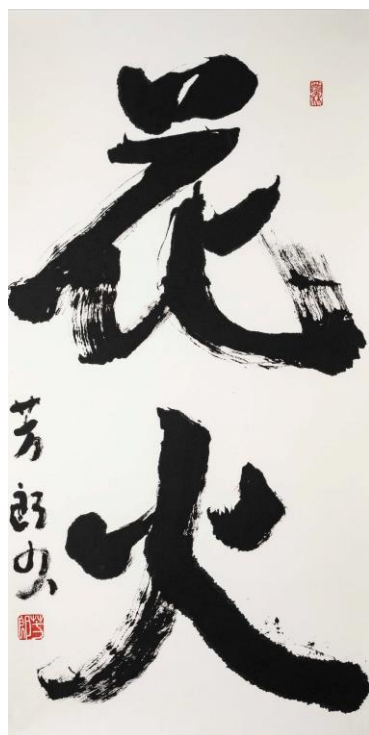 花火
芳郎